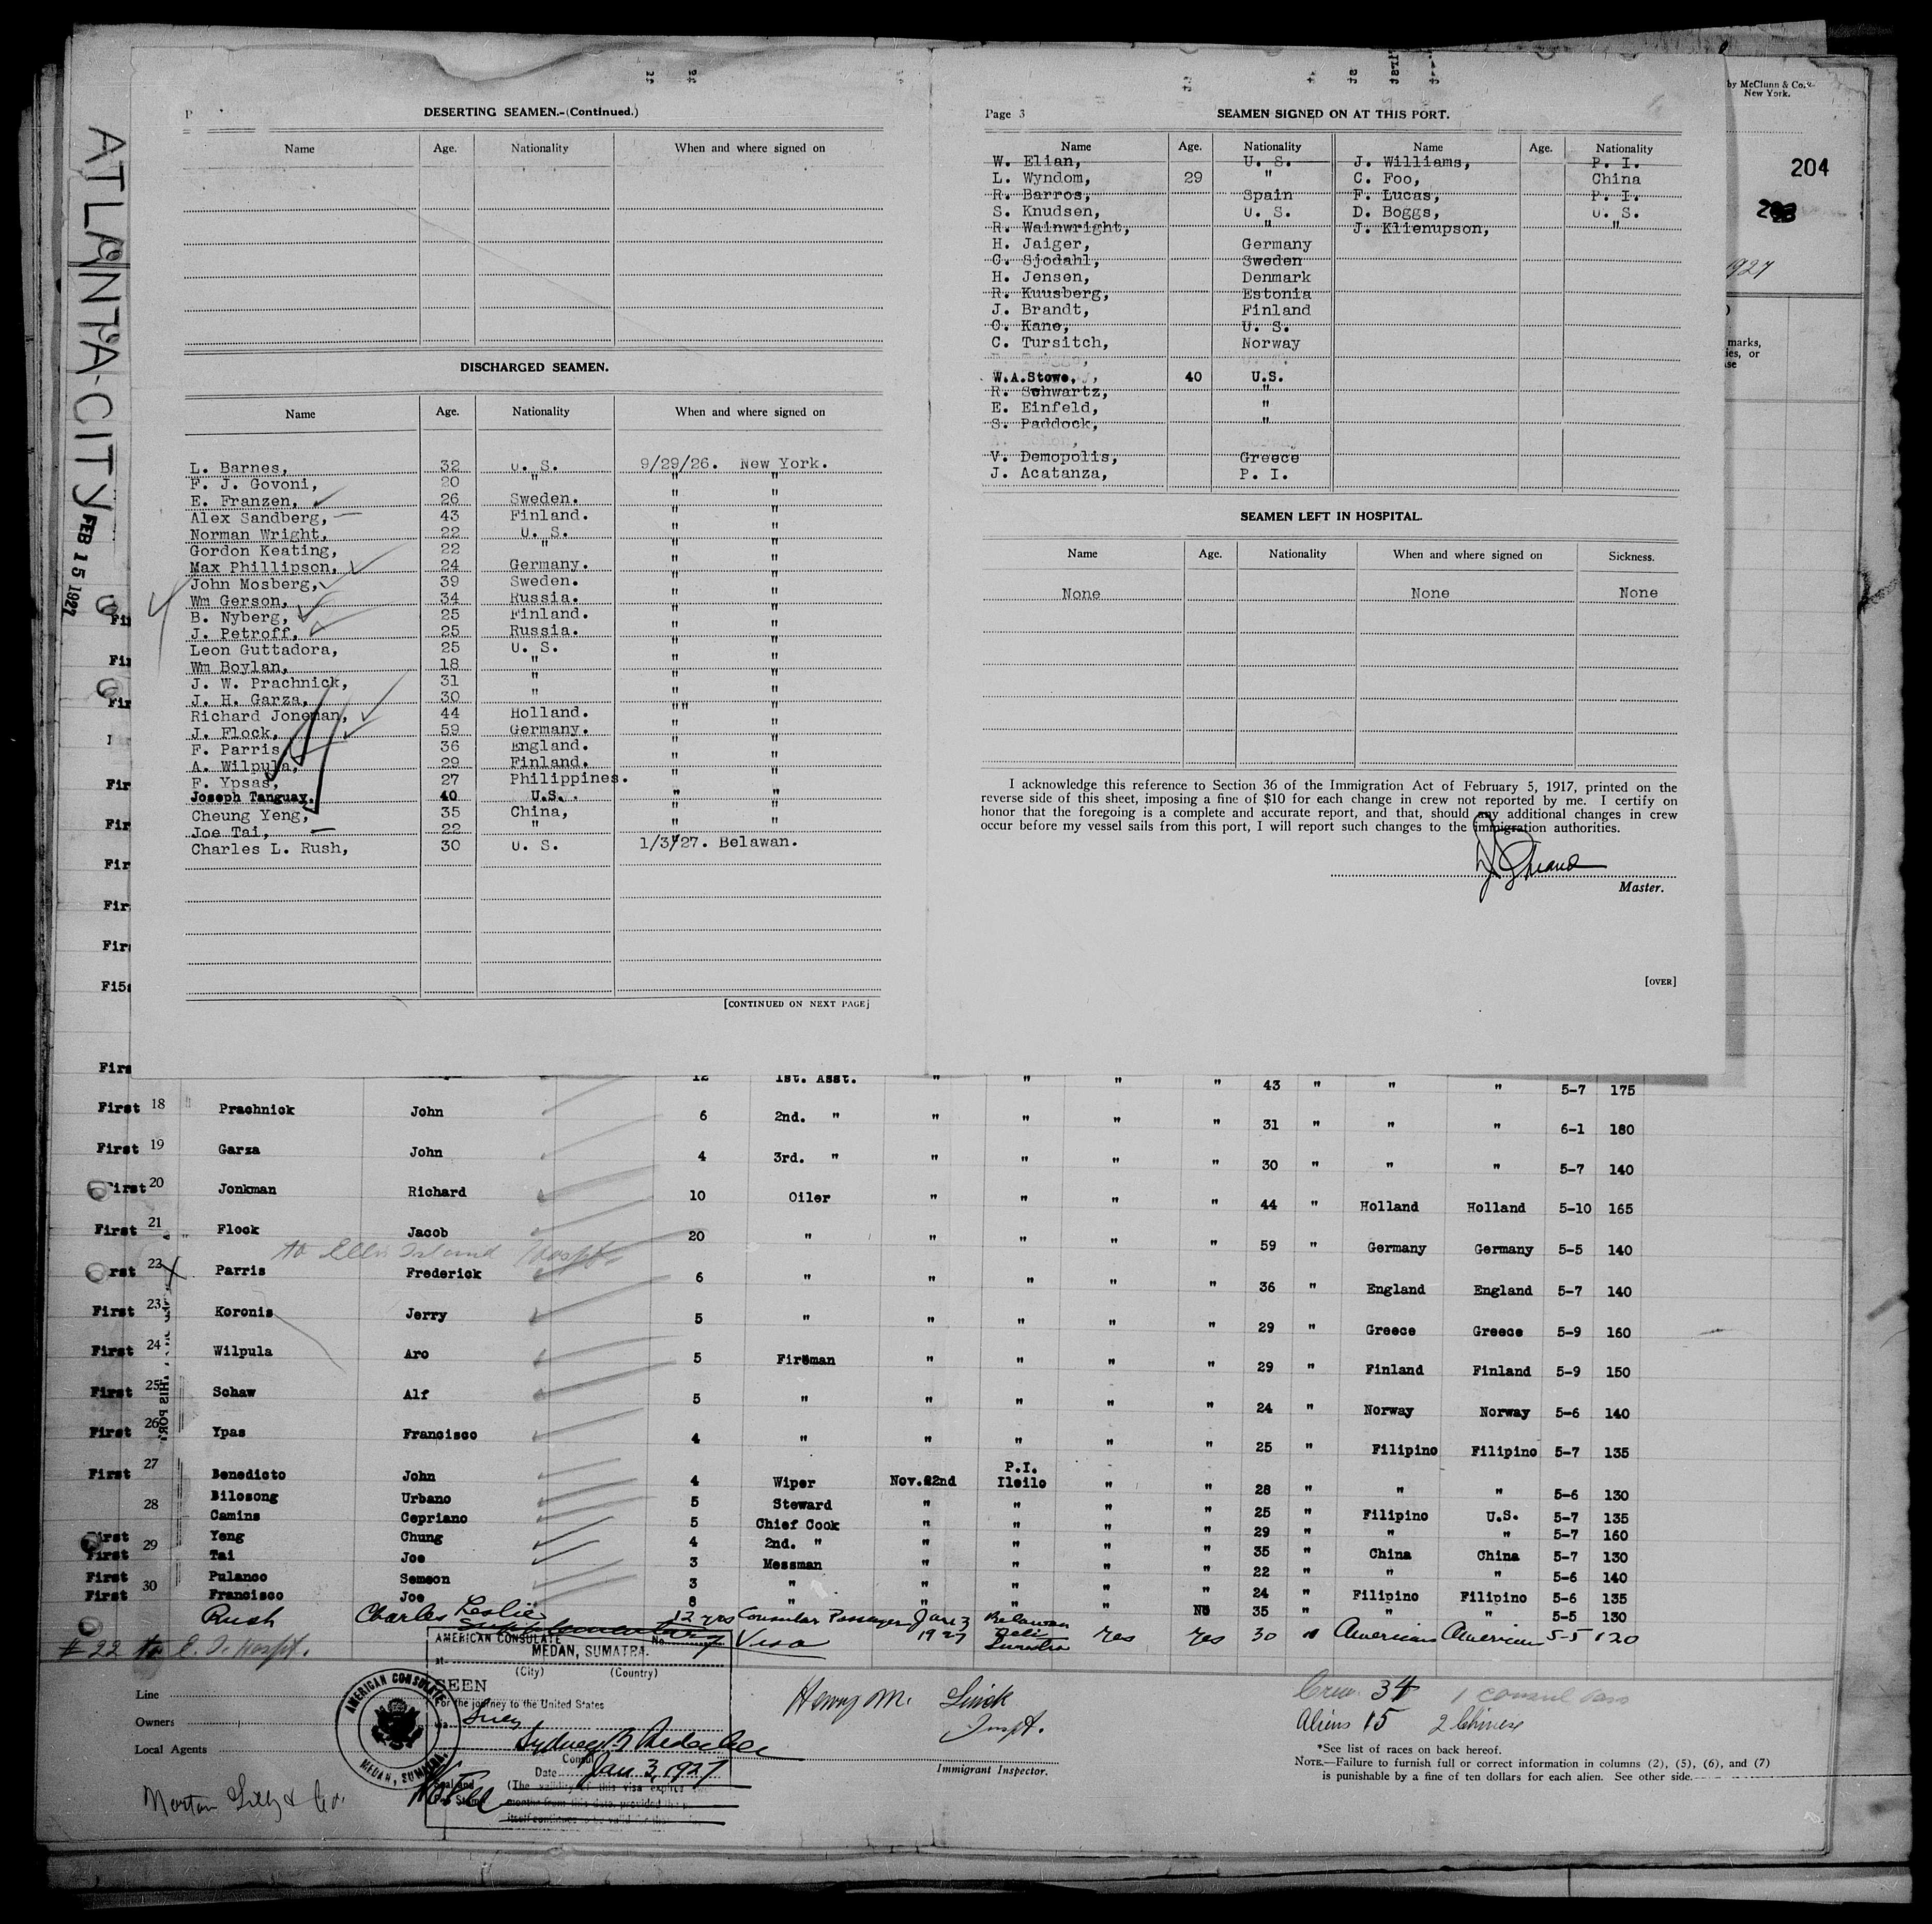 ATLANTA-CITY FEB 15 1927
by McClunn & Co.
New York.
204
1927
marks,
ies, or
se
DESERTING SEAMEN.-(Continued.)
Name Age. Nationality When and where signed on
DISCHARGED SEAMEN.
Name Age. Nationality When and where signed on
L. Barnes, 32 U. S. 9/29/26. New York.
F. J. Govoni, 20 " " "
E. Franzen, 26 Sweden. " "
Alex Sandberg, 43 Finland. " "
Norman Wright, 22 U. S. " "
Gordon Keating, 22 " " "
Max Phillipson, 24 Germany. " "
John Mosberg, 39 Sweden. " "
Wm Gerson, 34 Russia. " "
B. Nyberg, 25 Finland. " "
J. Petroff, 25 Russia. " "
Leon Guttadora, 25 U. S. " "
Wm Boylan, 18 " " "
J. W. Prachnick, 31 " " "
J. H. Garza, 30 " "" "
Richard Joneman, 44 Holland. " "
J. Flock, 59 Germany. " "
F. Parris, 36 England. " "
A. Wilpula, 29 Finland. " "
F. Ypsas, 27 Philippines. " "
Joseph Tanguay. 40 U.S. " "
Cheung Yeng, 35 China, " "
Joe Tai, 22 " "
Charles L. Rush, 30 U. S. 1/3/27. Belawan.
[CONTINUED ON NEXT PAGE]
Page 3 SEAMEN SIGNED ON AT THIS PORT.
Name Age. Nationality Name Age. Nationality
W. Elian, U. S. J. Williams, P. I.
L. Wyndom, 29 " C. Foo, China
R. Barros, Spain F. Lucas, P. I.
S. Knudsen, U. S. D. Boggs, U. S.
R. Wainwright, " J. Klienupson, "
H. Jaiger, Germany
C. Sjodahl, Sweden
H. Jensen, Denmark
R. Kuusberg, Estonia
J. Brandt, Finland
C. Kane, U. S.
C. Tursitch, Norway
W.A.Stowe, 40 U.S.
R. Schwartz, "
E. Einfeld, "
S. Paddock, "
V. Demopolis, Greece
J. Acatanza, P. I.
SEAMEN LEFT IN HOSPITAL.
Name Age. Nationality When and where signed on Sickness.
None None None
I acknowledge this reference to Section 36 of the Immigration Act of February 5, 1917, printed on the
reverse side of this sheet, imposing a fine of $10 for each change in crew not reported by me. I certify on
honor that the foregoing is a complete and accurate report, and that, should any additional changes in crew
occur before my vessel sails from this port, I will report such changes to the immigration authorities.
Master.
[OVER]
12 1st. Asst. " " " " 43 " " " 5-7 175
First 18 Prachnick John 6 2nd. " " " " " 31 " " " 6-1 180
First 19 Garza John 4 3rd. " " " " " 30 " " " 5-7 140
First 20 Jonkman Richard 10 Oiler " " " " 44 " Holland Holland 5-10 165
First 21 Flock Jacob 20 " " " " " 59 " Germany Germany 5-5 140
to Ellis Island Hospt.
rst 22 X Parris Frederick 6 " " " " " 36 " England England 5-7 140
First 23 Koronis Jerry 5 " " " " " 29 " Greece Greece 5-9 160
First 24 Wilpula Aro 5 Fireman " " " " 29 " Finland Finland 5-9 150
First 25 Schaw Alf 5 " " " " " 24 " Norway Norway 5-6 140
First 26 Ypas Francisco 4 " " " " " 25 " Filipino Filipino 5-7 135
First 27 Benedicto John 4 Wiper Nov.22nd P.I. Iloilo " " 28 " " " 5-6 130
28 Bilosong Urbano 5 Steward " " " " 25 " Filipino U.S. 5-7 135
Camins Cepriano 5 Chief Cook " " " " 29 " " " 5-7 160
First 29 Yeng Chung 4 2nd. " " " " " 35 " China China 5-7 130
First Tai Joe 3 Messman " " " " 22 " " " 5-6 140
First Pulanco Semeon 3 " " " " " 24 " Filipino Filipino 5-6 135
First 30 Francisco Joe 8 " " " " No 35 " " " 5-5 130
Rush Charles Leslie 12 yrs Consular Passenger Jan 3 1927 Belawan Deli Sumatra Yes Yes 30 " American American 5-5 120
Supplementary Visa
# 22 to E. I. Hospt.
AMERICAN CONSULATE No.
at MEDAN, SUMATRA.
(City) (Country)
SEEN
For the journey to the United States
via Suez
Consul
Date Jan 3, 1927
(The validity of this visa expires
months from this date, provided the
itself continues to be valid for that
Seal and
Fee Stamp
AMERICAN CONSULATE
MEDAN, SUMATRA.
Line
Owners
Local Agents
Norton Lilly & Co.
Henry M. Linck
Inspt.
Immigrant Inspector.
Crew 34 1 consul pass
Aliens 15 2 Chinese
*See list of races on back hereof.
NOTE.—Failure to furnish full or correct information in columns (2), (5), (6), and (7)
is punishable by a fine of ten dollars for each alien. See other side.